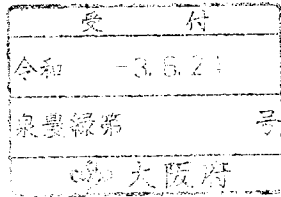 受付
令和 -3.6.21
泉農緑第 号
大阪府